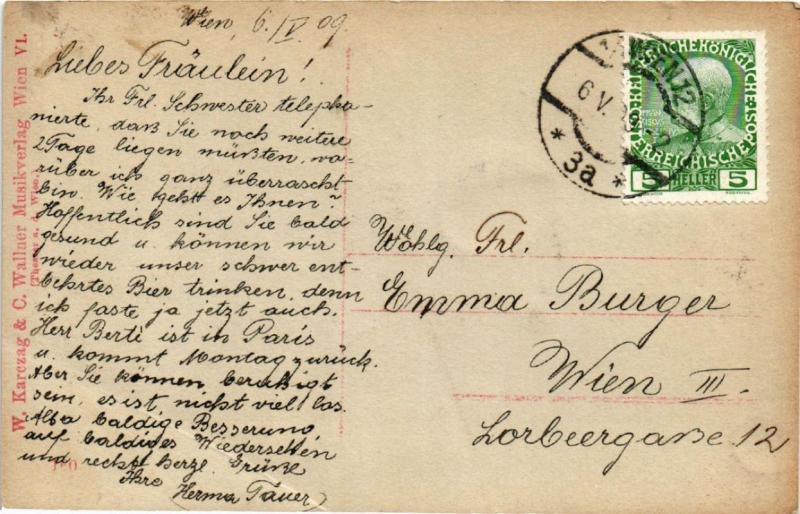 Wien, 6./V. 09.
Liebes Fräulein!
Ihr Frl. Schwester telepho-
nierte, daß Sie noch weitere
2 Tage liegen müßten, wo-
rüber ich ganz überrascht
bin. Wie geht es Ihnen?
Hoffentlich sind Sie bald
gesund u. können wir
wieder unser schwer ent-
behrtes Bier trinken, denn
ich faste ja jetzt auch.
Herr Bertè ist in Paris
u. kommt Montag zurück.
Aber Sie können beruhigt
sein, es ist nicht viel los.
Also baldige Besserung
auf baldiges Wiedersehen
und recht herzl. Grüße
Ihre
(Herma Tauer)
W. Karczag & C. Wallner Musikverlag Wien VI.
(Theater a. d. Wien)
WIEN 12
6 V. 09
* 3a *
KAISERLICHE KÖNIGLICHE
ÖSTERREICHISCHE
5 HELLER 5
Wohlg. Frl.
Emma Burger
Wien III.
Lorbeergasse 12